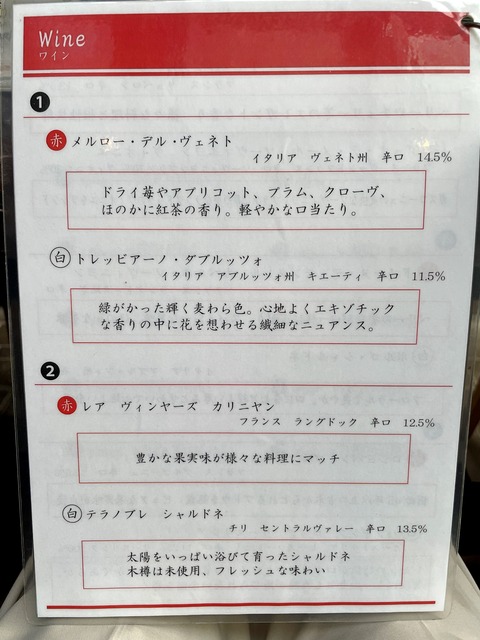 Wine
ワイン
1
赤 メルロー・デル・ヴェネト
イタリア ヴェネト州 辛口 14.5%
ドライ苺やアプリコット、プラム、クローヴ、
ほのかに紅茶の香り。軽やかな口当たり。
白 トレッビアーノ・ダブルッツォ
イタリア アブルッツォ州 キエーティ 辛口 11.5%
緑がかった輝く麦わら色。心地よくエキゾチック
な香りの中に花を想わせる繊細なニュアンス。
2
赤 レア ヴィンヤーズ カリニヤン
フランス ラングドック 辛口 12.5%
豊かな果実味が様々な料理にマッチ
白 テラノブレ シャルドネ
チリ セントラルヴァレー 辛口 13.5%
太陽をいっぱい浴びて育ったシャルドネ
木樽は未使用、フレッシュな味わい